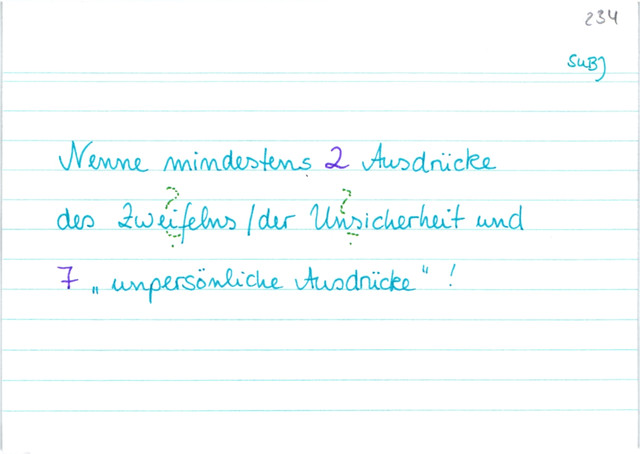 234
SUBJ
Nenne mindestens 2 Ausdrücke
des Zweifelns / der Unsicherheit und
7 „unpersönliche Ausdrücke“ !